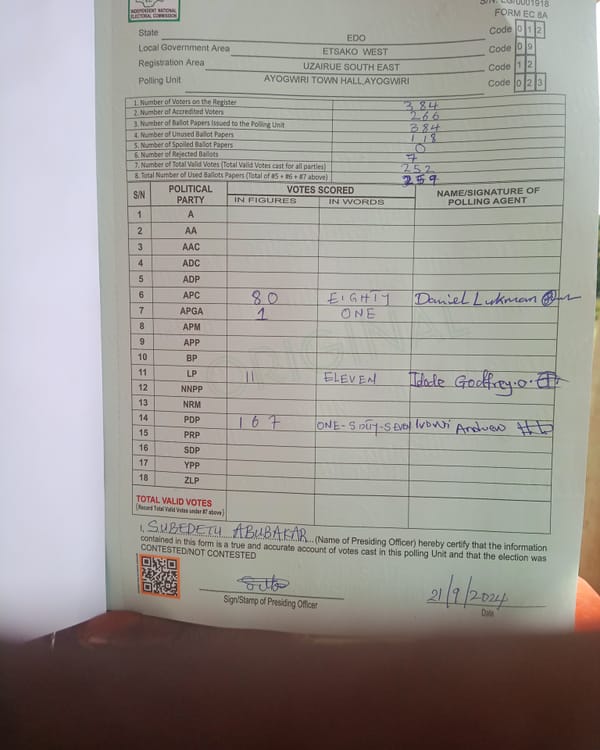 INDEPENDENT NATIONAL
ELECTORAL COMMISSION
S/N: EG/0001918
FORM EC 8A
State EDO Code 0 1 2
Local Government Area ETSAKO WEST Code 0 9
Registration Area UZAIRUE SOUTH EAST Code 1 2
Polling Unit AYOGWIRI TOWN HALL,AYOGWIRI Code 0 2 3
1. Number of Voters on the Register 384
2. Number of Accredited Voters 266
3. Number of Ballot Papers Issued to the Polling Unit 384
4. Number of Unused Ballot Papers 118
5. Number of Spoiled Ballot Papers 0
6. Number of Rejected Ballots 7
7. Number of Total Valid Votes (Total Valid Votes cast for all parties) 252
8. Total Number of Used Ballots Papers (Total of #5 + #6 + #7 above) 259
S/N POLITICAL PARTY VOTES SCORED NAME/SIGNATURE OF POLLING AGENT
IN FIGURES IN WORDS
1 A
2 AA
3 AAC
4 ADC
5 ADP
6 APC 80 EIGHTY Daniel Lukman
7 APGA 1 ONE
8 APM
9 APP
10 BP
11 LP 11 ELEVEN Idode Godfrey.O.
12 NNPP
13 NRM
14 PDP 167 Andrew
15 PRP
16 SDP
17 YPP
18 ZLP
ORIGINAL
TOTAL VALID VOTES
(Record Total Valid Votes under #7 above)
I, SUBEDETU ABUBAKAR (Name of Presiding Officer) hereby certify that the information
contained in this form is a true and accurate account of votes cast in this polling Unit and that the election was
CONTESTED/NOT CONTESTED
Sign/Stamp of Presiding Officer
21/9/2024
Date